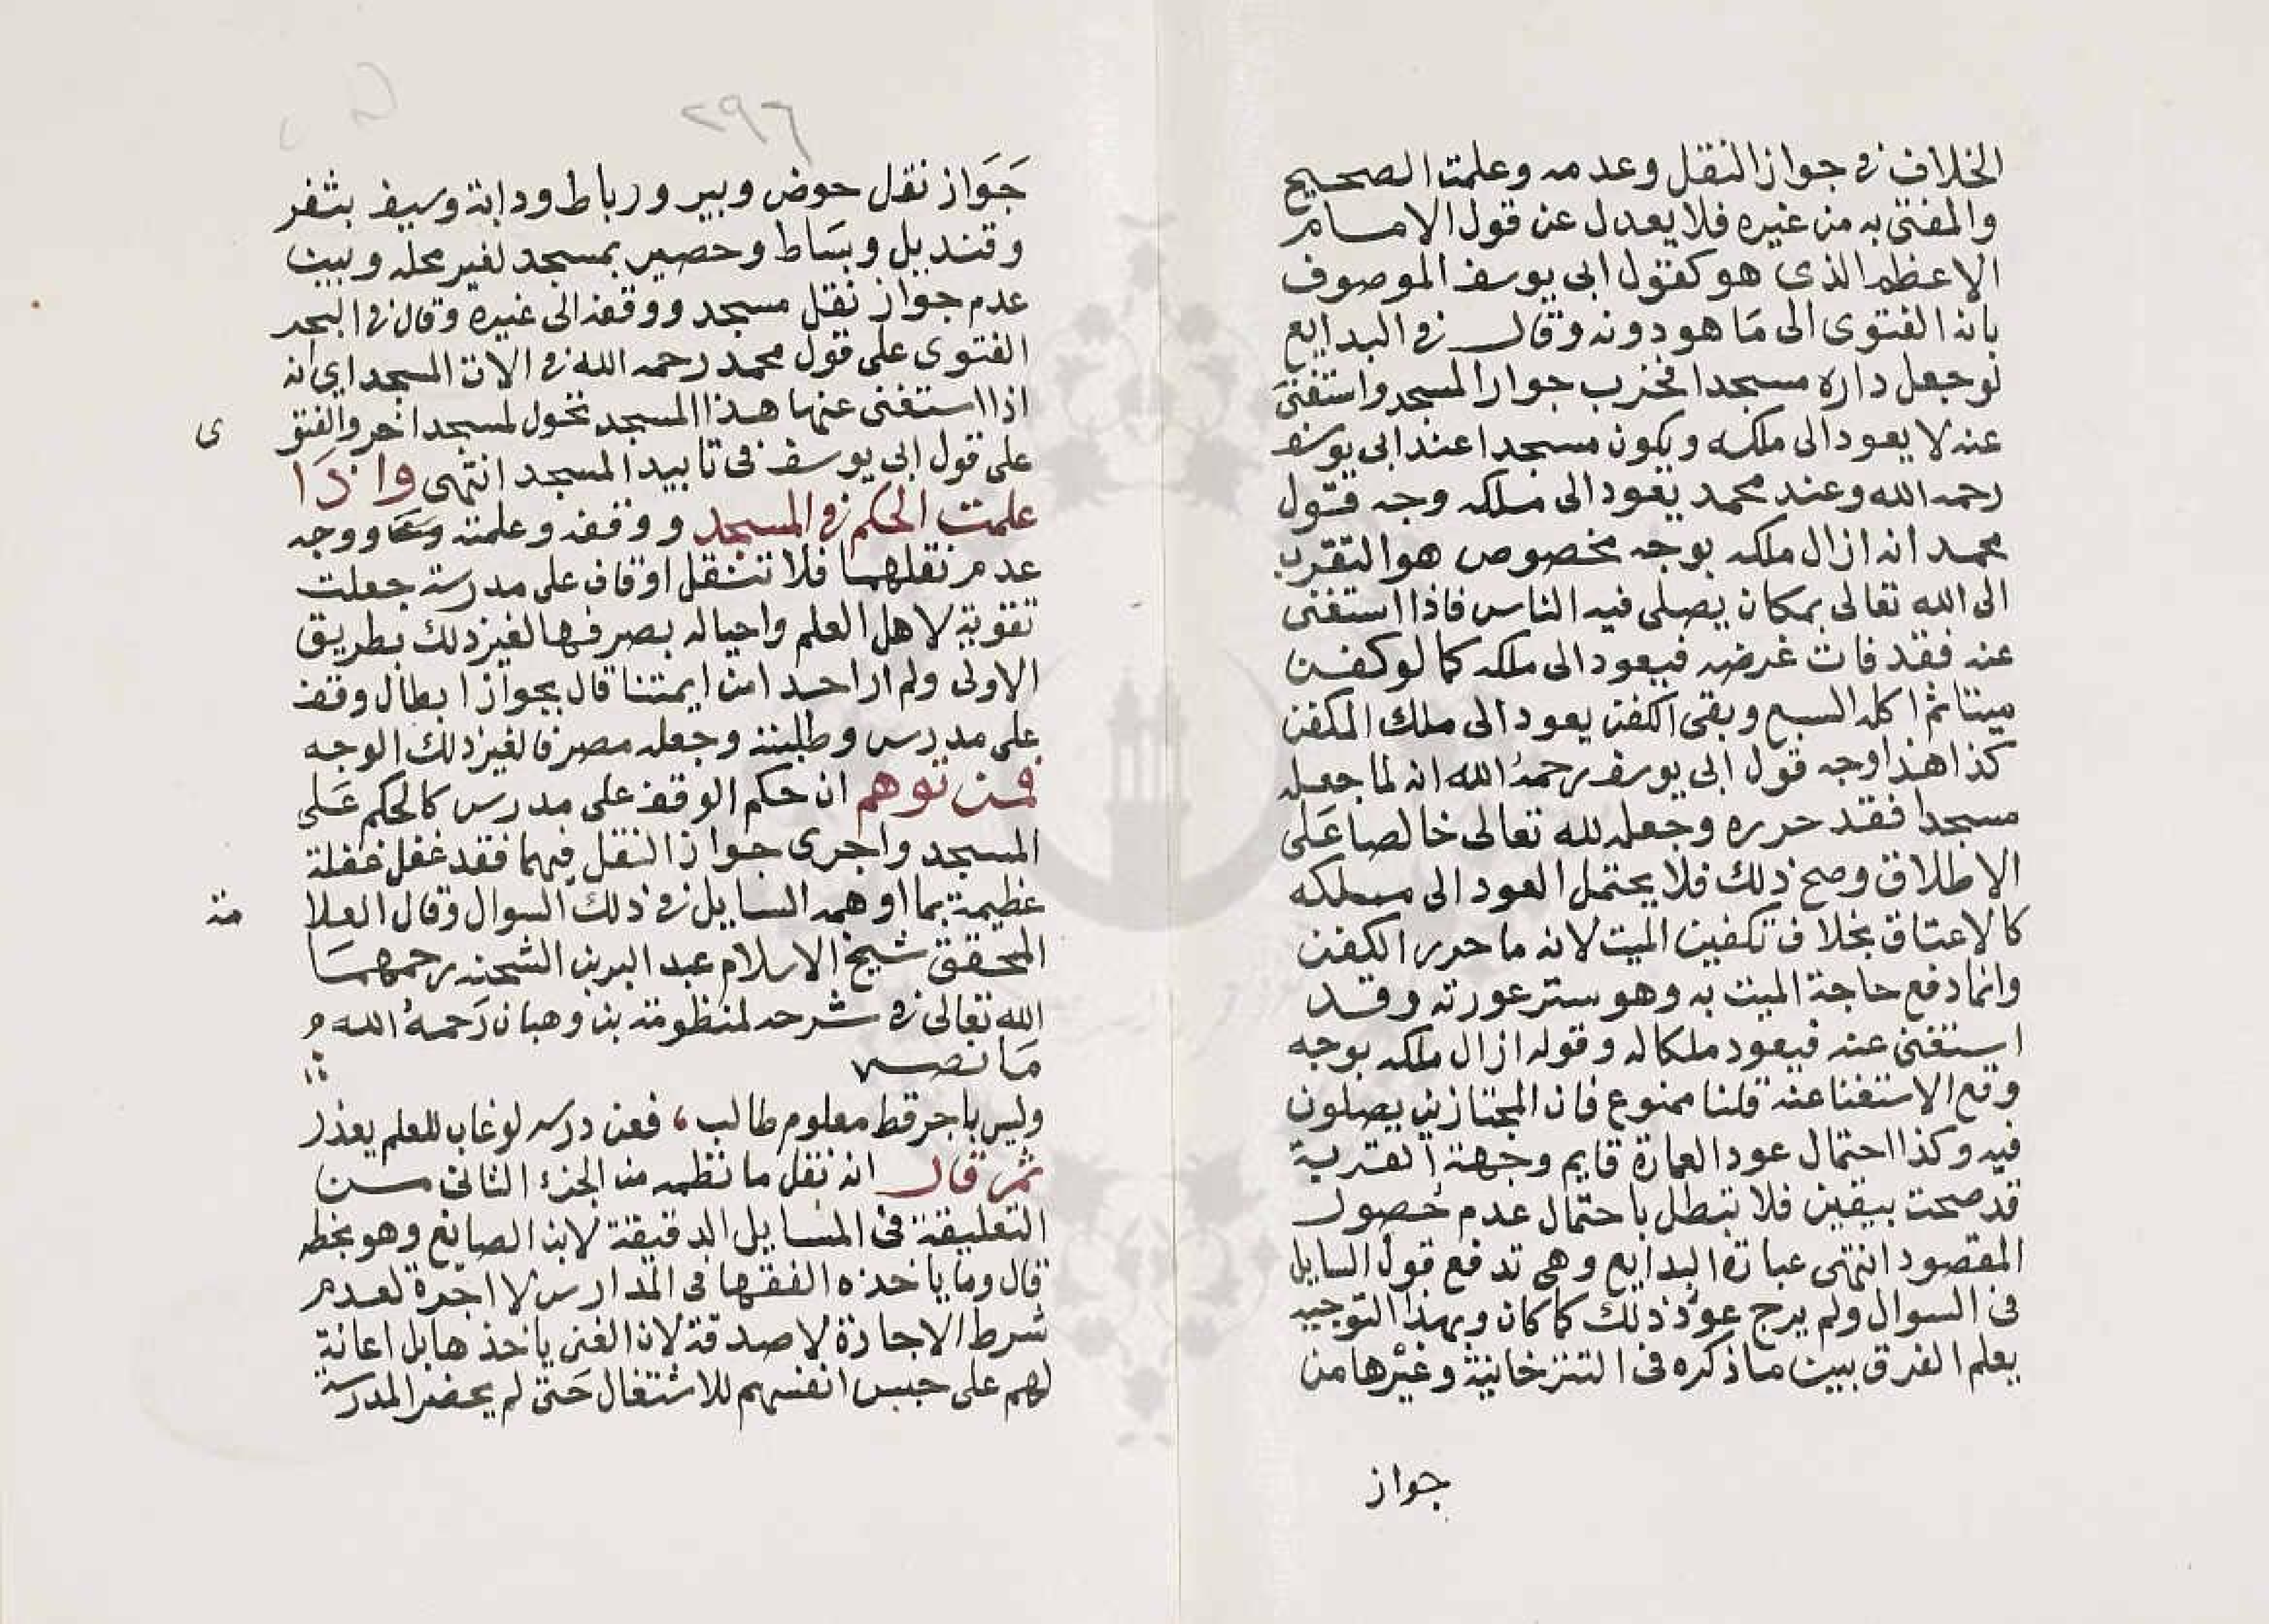 الخلاف في جواز النقل وعدمه وعلمت الصحيح
والمفتى به من غيره فلا يعدل عن قول الامام
الاعظم الذى هو كقول ابى يوسف الموصوف
بانه الفتوى الى مَا هو دونه وقال في البدايع
لو جعل داره مسجدا فخرب جوار المسجد واستغنى
عنه لا يعود الى ملكه ويكون مسجدا عند ابى يوسف
رحمه الله وعند محمد يعود الى ملكه وجه قول
محمد انه ازال ملكه بوجه مخصوص هو التقرب
الى الله تعالى بمكان يصلى فيه الناس فاذا استغنى
عنه فقد فات غرضه فيعود الى ملكه كما لو كفن
ميتا ثم اكله السبع وبقى الكفن يعود الى ملك المكفن
كذا هذا وجه قول ابى يوسف رحمهُ الله انه لما جعله
مسجدا فقد حرره وجعله لله تعالى خالصا عَلى
الاطلاق وصح ذلك فلا يحتمل العود الى ملكه
كالاعتاق بخلاف تكفين الميت لانه ما حرر الكفن
وانما دفع حاجة الميت به وهو ستر عورته وقد
استغنى عنه فيعود ملكا له وقوله ازال ملكه بوجه
وقع الاستغنا عنه قلنا ممنوع فان المجتازين يصلون
فيه وكذا احتمال عود العمارة قايم وجهة القربة
قد صحت بيقين فلا تبطل باحتمال عدم حصول
المقصود انتهى عبارة البدايع وهى تدفع قول السايل
فى السوال ولم يرج عود ذلك كما كان وبهذا التوجيه
يعلم الفرق بين ما ذكره فى التترخانية وغيرها من
جواز
٢٩٦
جَوَاز نقل حوض وبير ورباط ودابة وسيف بثغر
وقنديل وبسَاط وحصير بمسجد لغير محله وبين
عدم جواز نقل مسجد ووقفه الى غيره وقال في البحر
الفتوى على قول محمد رحمه الله في الات المسجد اى انه
اذا استغنى عنها هذا المسجد تحول لمسجد اخر والفتو ى
على قول ابى يوسف فى تابيد المسجد انتهى واذَا
علمت الحكم في المسجد ووقفه وعلمته ووجه
عدم نقلهما فلا تنتقل اوقاف على مدرسة جعلت
تقوية لاهل العلم واحياله بصرفها لغير ذلك بطريق
الاولى ولم ار احدا من ايمتنا قال بجواز ابطال وقف
على مدرس وطلبته وجعله مصرفا لغير ذلك الوجه
فمن توهم ان حكم الوقف على مدرس كالحكم عَلى
المسجد واجرى جواز النقل فيهما فقد غفل غفلة
عظيمة بما اوهمه السايل في ذلك السوال وقال العلا مة
المحقق شيخ الاسلام عبد البر بن الشحنه رحمهمَا
الله تعالى في شرحه لمنظومة بن وهبان رَحمهُ الله
مَا نصه
وليس باجر قط معلوم طالب ، فعن درسه لو غاب للعلم يعذر
ثم قال انه نقل ما نظمه من الجزء الثانى من
التعليقة فى المسايل الدقيقة لابن الصايغ وهو بخطه
قال وما ياخذه الفقها فى المدارس لا اجرة لعدم
شرط الاجارة لا صدقة لان الغنى ياخذها بل اعانة
لهم على حبس انفسهم للاشتغال حَتى لم يحضر المدرسة